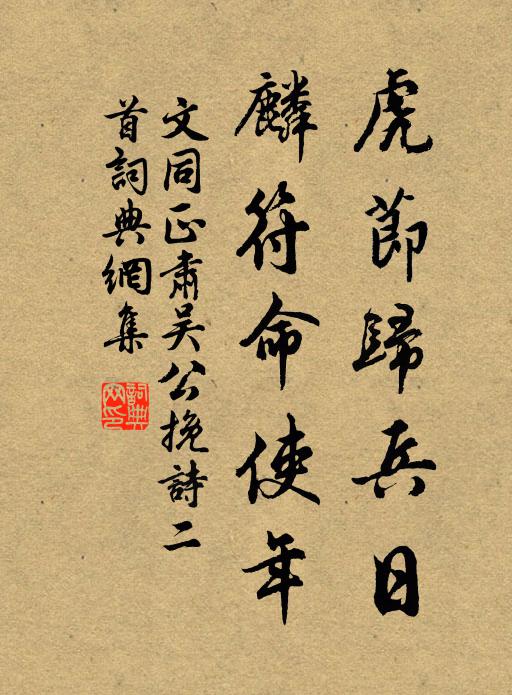 虎節歸兵日
麟符命使年
文同正肅吳公挽詩二
首詞典網集
詞典
网印